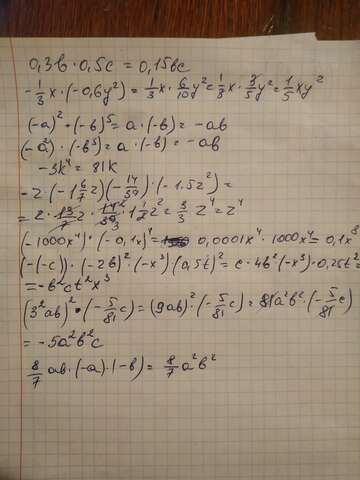 0,3в · 0,5с = 0,15вс
-1/3 x · (-0,6y²) = 1/3 x · 6/10 y² = 1/3 x · 3/5 y² = 1/5 xy²
(-a)² · (-в)⁵ = a · (-в) = -aв
(-a²) · (-в⁵) = a · (-в) = -aв
-3k⁴ = 81k
-2 · (-1 6/7 z)(-14/39) · (-1.5z²) =
= 2 · 13/7 z · 14/39 · 1 1/2 z² = 3/3 z⁴ = z⁴
(-1000x⁴) · (-0,1x)⁴ = 0,0001x⁴ · 1000x⁴ = 0,1x⁸
(-(-c)) · (-2в)² · (-x³) (0,5t)² = c · 4в² (-x³) · 0,25t² =
= -в²ct²x³
(3²aв)² · (-5/81 c) = (9aв)² · (-5/81 c) = 81a²в² · (-5/81 c)
= -5a²в²c
8/7 aв · (-a) · (-в) = 8/7 a²в²